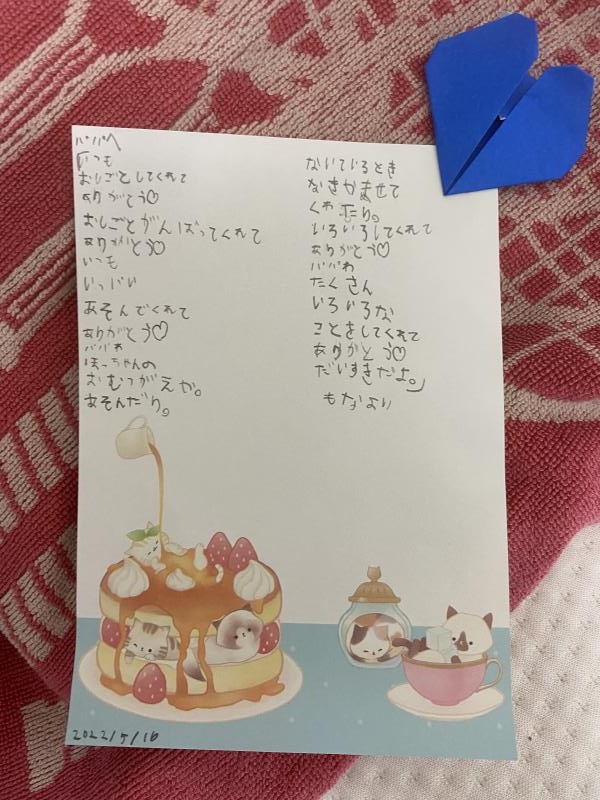 パパへ
「いつも
おしごとしてくれて
ありがとう♡
おしごとがんばってくれて
ありがとう♡
いつも
いっぱい
あそんでくれて
ありがとう♡
パパわ
ぼっちゃんの
おむつがえか。
あそんだり。
ないているとき
なきかませて
くれたり。
いろいろしてくれて
ありがとう♡
パパわ
たくさん
いろいろな
ことをしてくれて
ありがとう♡
だいすきだよ。」
もなより
2022/5/16